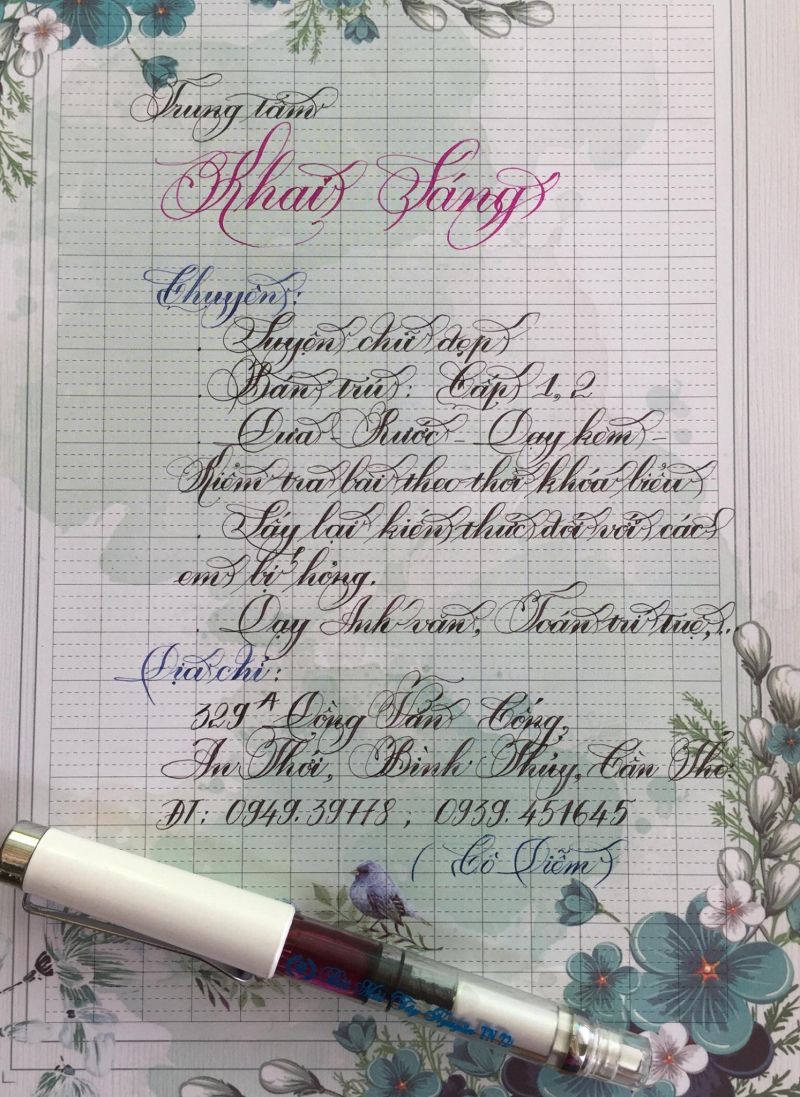 Trung tâm
Khai Sáng
Chuyên:
. Luyện chữ đẹp
. Bán trú: Cấp 1, 2
. Đưa - Rước - Dạy kèm -
Kiểm tra bài theo thời khóa biểu
. Lấy lại kiến thức đối với các
em bị hỏng.
Dạy Anh văn, Toán trí tuệ,..
Địa chỉ:
329A Đồng Văn Cống,
An Thới, Bình Thủy, Cần Thơ.
ĐT: 0949.39778 ; 0939.451645
( Cô Diễm )